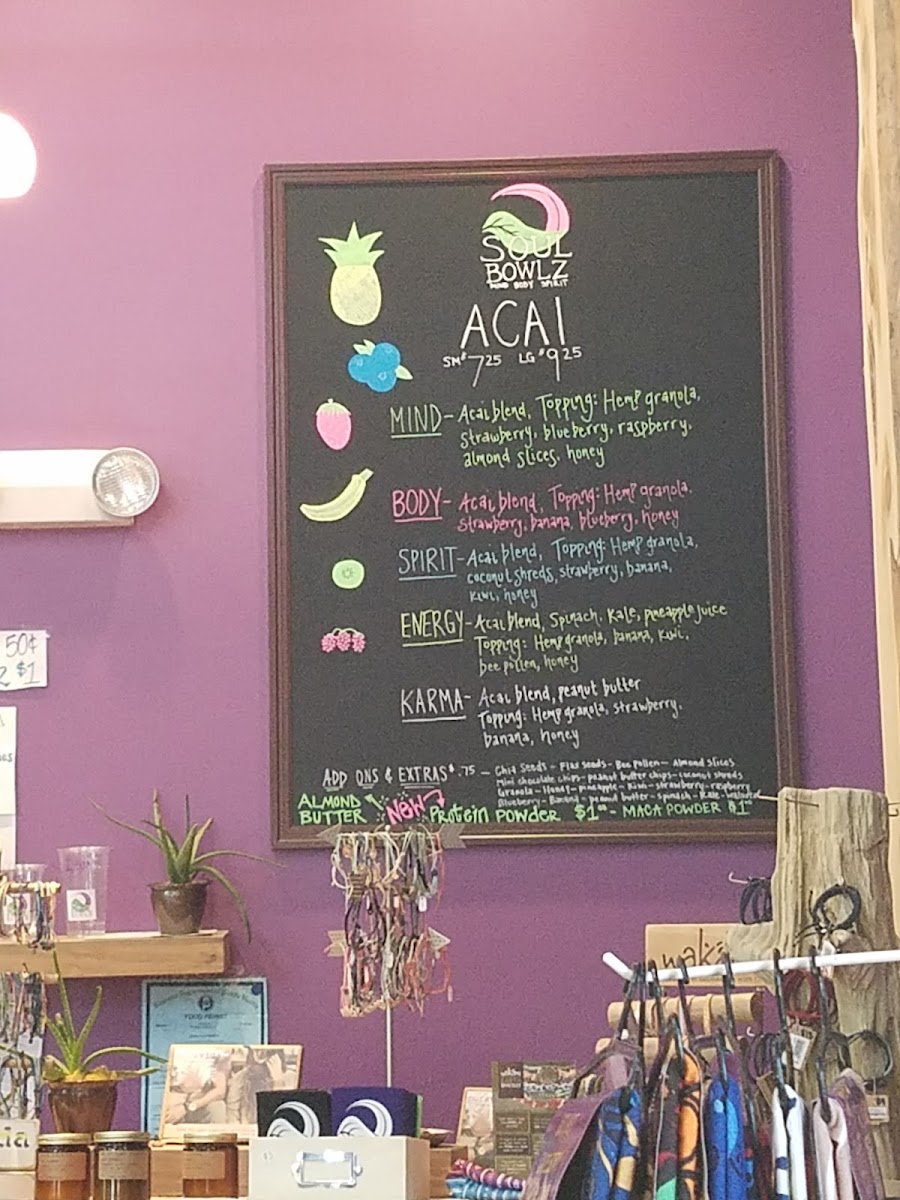 SOUL
BOWLZ
MIND BODY SPIRIT
ACAI
SM $7.25 LG $9.25
MIND - Acai blend, Topping: Hemp granola,
strawberry, blueberry, raspberry,
almond slices, honey
BODY - Acai blend, Topping: Hemp granola,
strawberry, banana, blueberry, honey
SPIRIT - Acai blend, Topping: Hemp granola,
coconut shreds, strawberry, banana,
kiwi, honey
ENERGY - Acai blend, Spinach, Kale, pineapple juice
Topping: Hemp granola, banana, kiwi,
bee pollen, honey
KARMA - Acai blend, peanut butter
Topping: Hemp granola, strawberry,
banana, honey
ADD ONS & EXTRAS $.75 - Chia Seeds - Flax seeds - Bee Pollen - Almond slices
Mini chocolate chips - peanut butter chips - coconut shreds
Granola - Honey - pineapple - Kiwi - strawberry - raspberry
Blueberry - Banana - peanut butter - spinach - Kale - walnuts
ALMOND
BUTTER NEW Protein POWDER $1.00 - MACA POWDER $1.00
50¢
2 $1
FOOD PERMIT